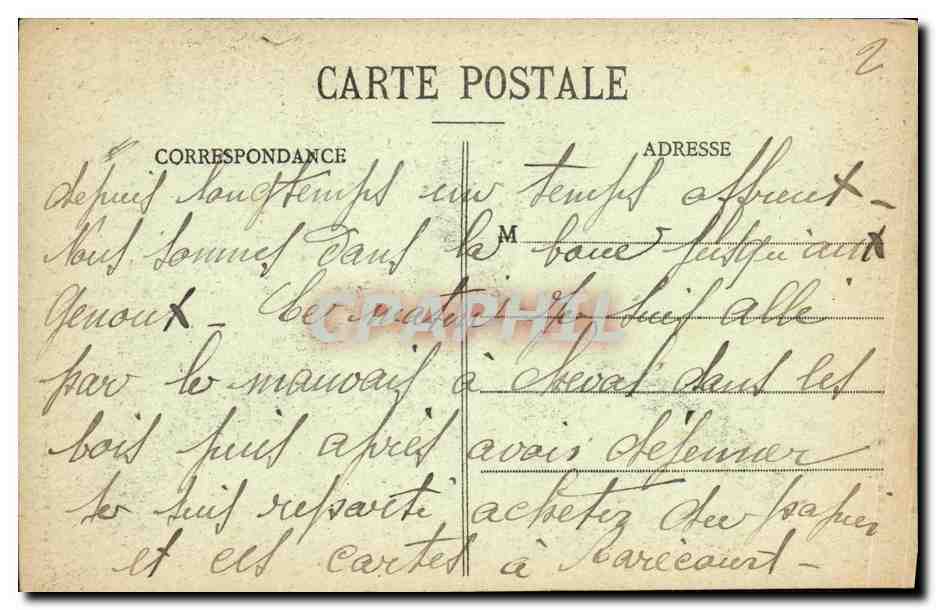 2
CARTE POSTALE
CORRESPONDANCE
ADRESSE
M
depuis longtemps un temps affreux -
Nous sommes dans la boue jusqu'aux
genoux - Ce matin je suis allé
par le mauvais à cheval dans les
bois puis après avoir déjeuner
je suis reparti achetez du papier
et ces cartes à Rarécourt -
CPAPHIL